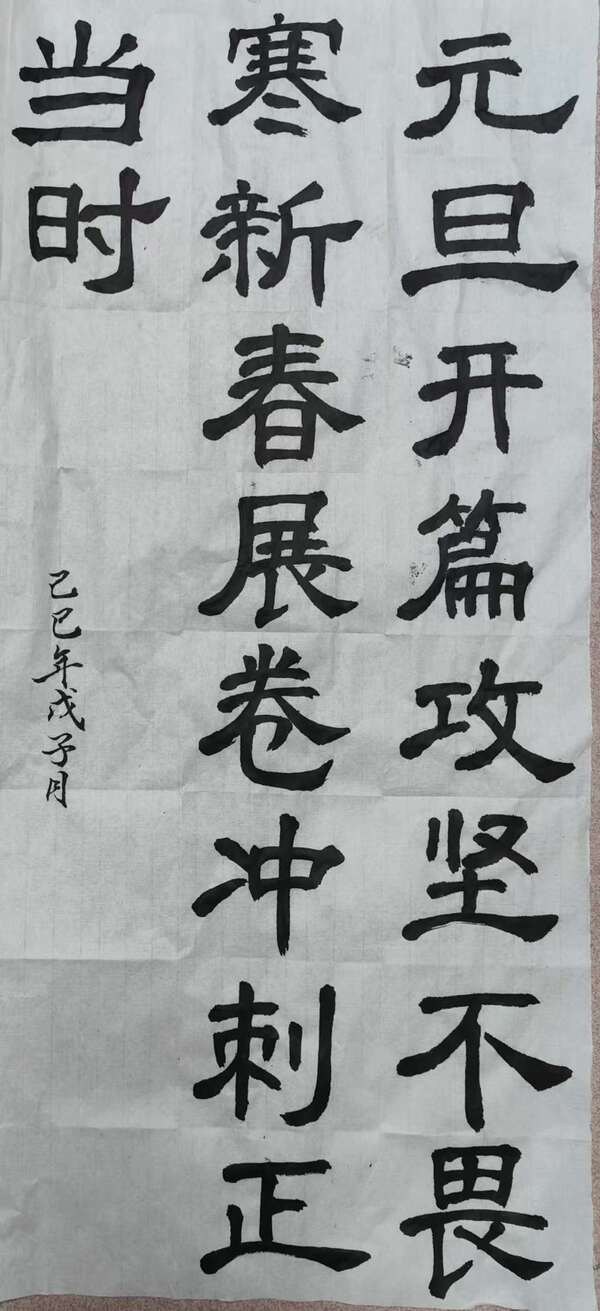 元旦开篇攻坚不畏
寒新春展卷冲刺正
当时
己巳年戊子月